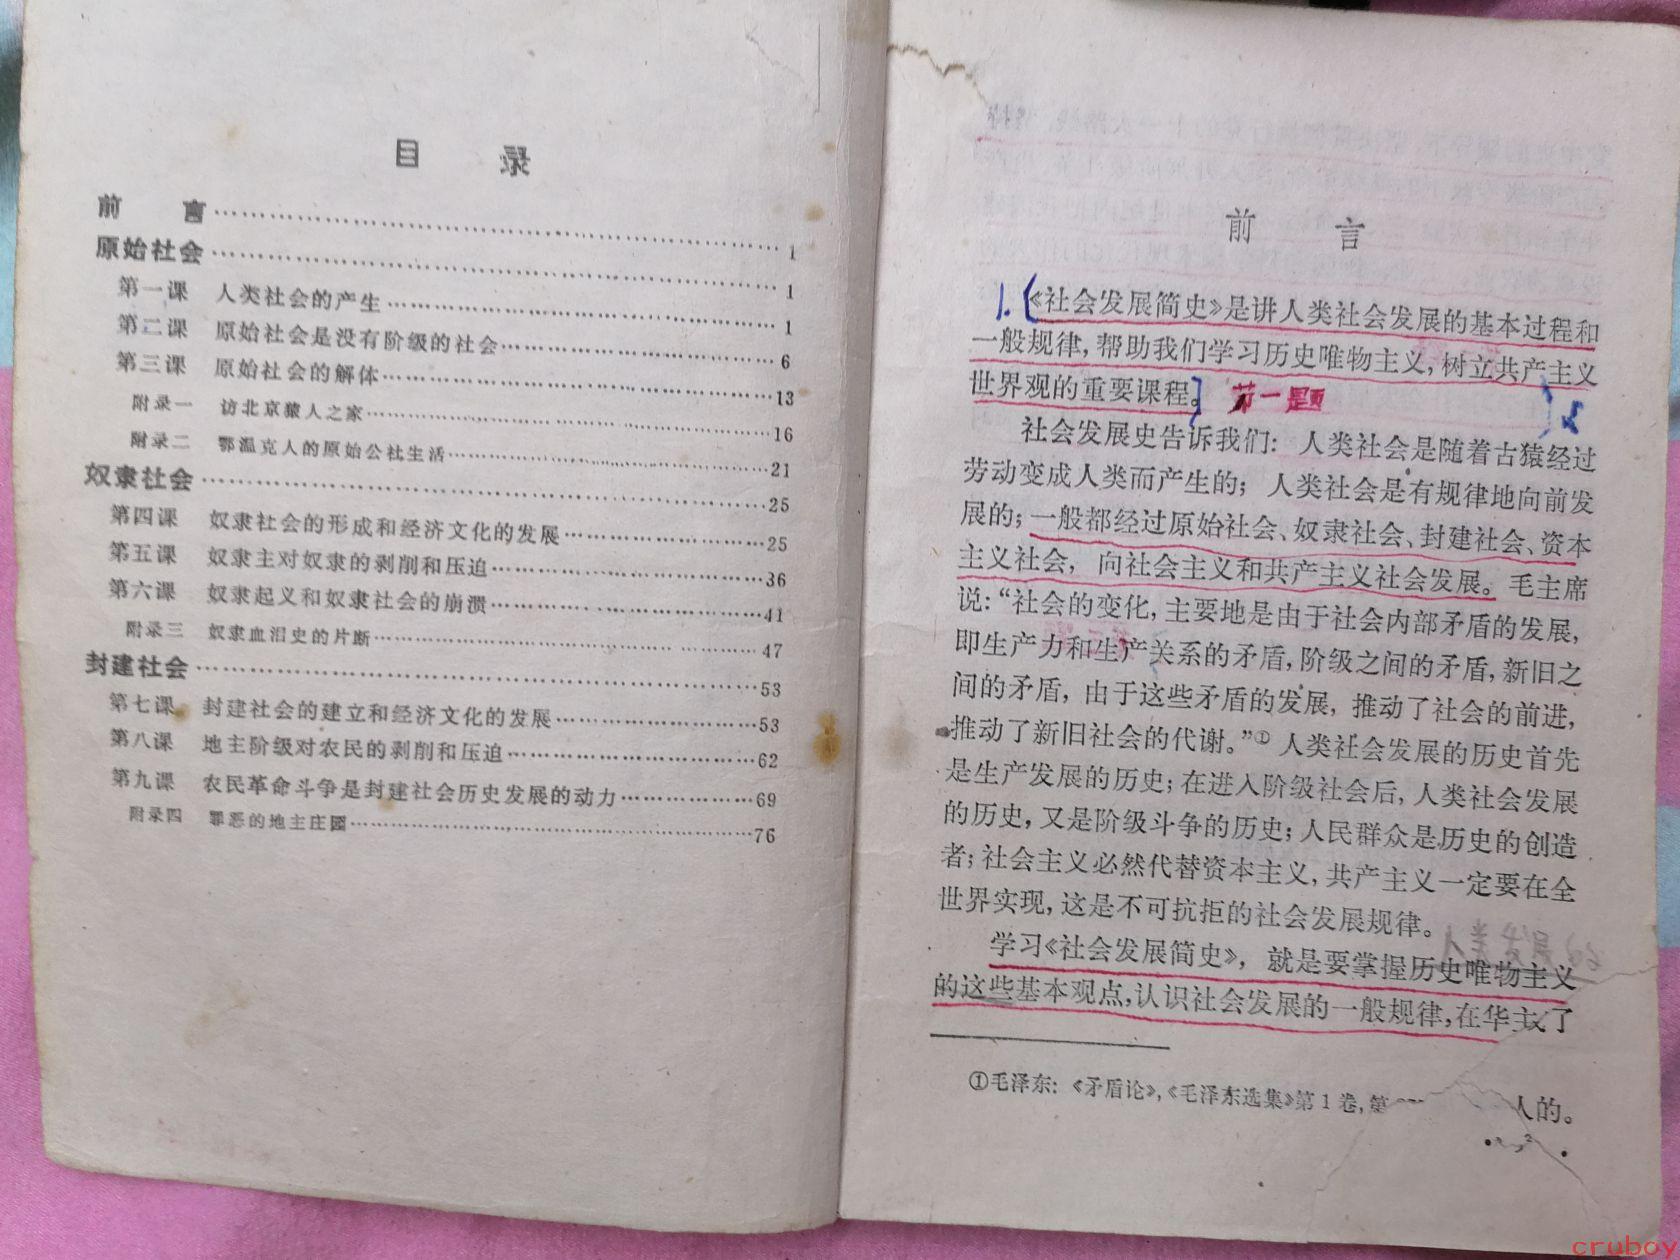 目 录
前 言……………………………………………… 1
原始社会……………………………………………… 1
第一课 人类社会的产生…………………………… 1
第二课 原始社会是没有阶级的社会…………………… 6
第三课 原始社会的解体……………………………13
附录一 访北京猿人之家……………………………16
附录二 鄂温克人的原始公社生活……………………21
奴隶社会………………………………………………25
第四课 奴隶社会的形成和经济文化的发展………………25
第五课 奴隶主对奴隶的剥削和压迫……………………36
第六课 奴隶起义和奴隶社会的崩溃……………………41
附录三 奴隶血泪史的片断……………………………47
封建社会………………………………………………53
第七课 封建社会的建立和经济文化的发展………………53
第八课 地主阶级对农民的剥削和压迫……………………62
第九课 农民革命斗争是封建社会历史发展的动力…………69
附录四 罪恶的地主庄园……………………………76
前 言
1.《社会发展简史》是讲人类社会发展的基本过程和
一般规律,帮助我们学习历史唯物主义,树立共产主义
世界观的重要课程。 第一题
社会发展史告诉我们: 人类社会是随着古猿经过
劳动变成人类而产生的; 人类社会是有规律地向前发
展的;一般都经过原始社会、奴隶社会、封建社会、资本
主义社会, 向社会主义和共产主义社会发展。毛主席
说:“社会的变化,主要地是由于社会内部矛盾的发展,
即生产力和生产关系的矛盾,阶级之间的矛盾,新旧之
间的矛盾, 由于这些矛盾的发展, 推动了社会的前进,
推动了新旧社会的代谢。”① 人类社会发展的历史首先
是生产发展的历史;在进入阶级社会后,人类社会发展
的历史,又是阶级斗争的历史;人民群众是历史的创造
者;社会主义必然代替资本主义,共产主义一定要在全
世界实现,这是不可抗拒的社会发展规律。
人类发展
学习《社会发展简史》, 就是要掌握历史唯物主义
的这些基本观点,认识社会发展的一般规律,在华主
①毛泽东: 《矛盾论》,《毛泽东选集》第1卷,第
人的。
cruboy